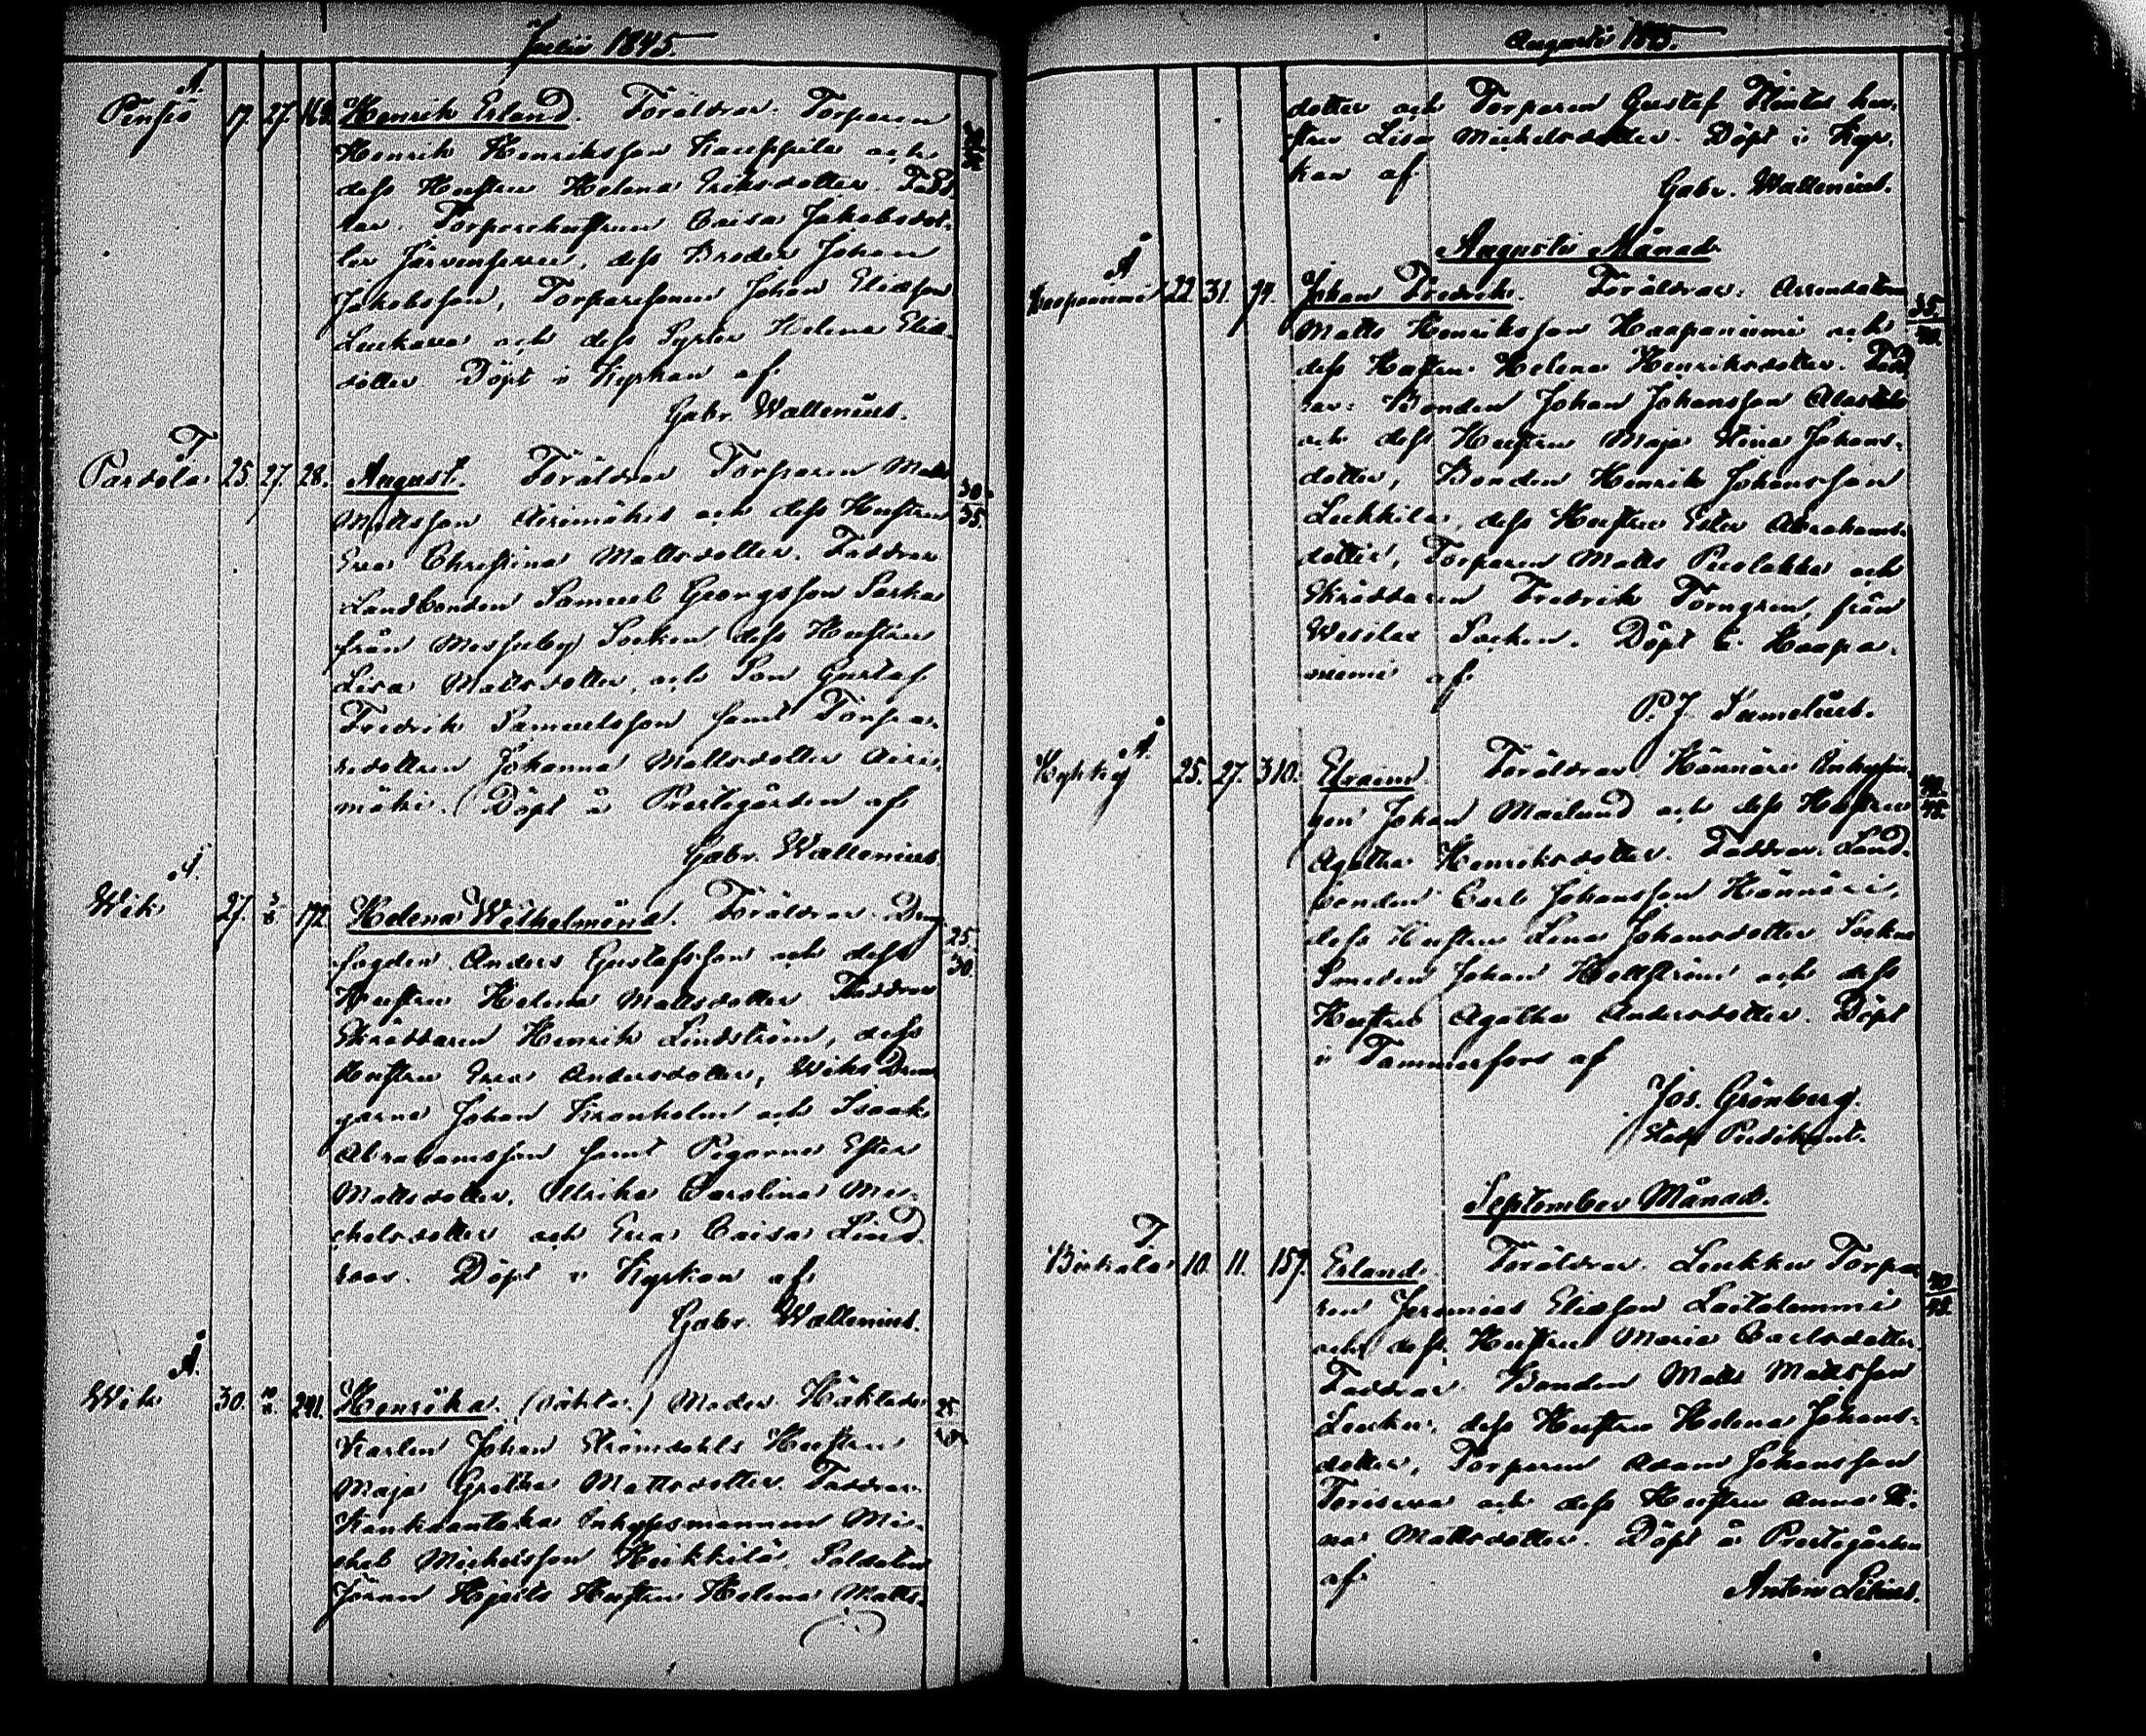 Julii 1845.
Å.
Pinsiö 17. 27. 168. Henrik Erland. Föräldrar. Torparen
Henrik Henriksson Kauppila och
dess Hustru Helena Eriksdotter. Fadd-
rar. Torparehustrun Caisa Jakobsdot-
ter Järvensivu, dess Broder Johan
Jakobsson, Torparesonen Johan Eliasson
Leukava och dess Syster Helena Elias-
dotter. Döpt i Kyrkan af
Gabr. Wallenius.
T
Pardola 25 27. 28. August. Föräldrar Torparen Matts 30. 35.
Mattsson Airimäki och dess Hustru
Eva Christina Mattsdotter. Faddrar
Landbonden Samuel Georgsson Sarka
från Messuby Socken dess Hustru
Lisa Mattsdotter, och Son Gustaf
Fredrik Samuelsson samt Torpa-
redottren Johanna Mattsdotter Airi-
mäki. Döpt å Prestegården af
Gabr. Wallenius.
Å.
Wik 27. 172. Helena Wilhelmina. Föräldrar Dreng- 25. 30.
fogden Anders Gustafsson och dess
Hustru Helena Mattsdotter Faddrar
Skräddaren Henrik Lindström, dess
Hustru Eva Andersdotter, Wiks Dren-
garne Johan Kronholm och Isaak
Abrahamsson samt Pigorna Ester
Mattsdotter, Ulrika Carolina Mi-
chelsdotter och Eva Caisa Lind-
roos. Döpt i Kyrkan af
Gabr. Wallenius.
Å.
Wik 30. 241. Henrika. (oäkta.) Moder Häktade 25.
Karlen Johan Strömdahls Hustru
Maja Gretha Mattsdotter. Faddrar.
Kankaantaka Inhysesmannen Mi-
chel Michelsson Heikkilä, Soldaten
Jöran Hjelts Hustru Helena Matts-
Augusti 1845.
dotter och Torparen Gustaf Hu-
stru Lisa Michelsdotter. Döpt i Kyr-
kan af
Gabr. Wallenius.
Augusti Månad.
Å
Haapaniemi 22. 31. 94. Johan Fredrik. Föräldrar: Arrendatorn 35. 40.
Matts Henriksson Haapaniemi och
dess Hustru Helena Henriksdotter. Fadd-
rar: Bonden Johan Johansson
och dess Hustru Maja Stina Johans-
dotter, Bonden Henrik Johansson
Leukkila, dess Hustru Ester Abrahams-
dotter, Torparen Matts Puolakka och
Skräddaren Fredrik Torngren, från
Wesilax Socken. Döpt i Haapa-
niemi af
P. J. Sumelius.
Å.
Kyhky 25. 27. 310. Efraim Föräldrar Hännäri Inhysin-
gen Johan Mailund och dess Hustru
Agatha Henriksdotter. Faddrar. Land-
bonden Carl Johansson Hännäri,
dess Hustru Lena Johansdotter Socken
Smeden Johan Hellström och dess
Hustru Agatha Andersdotter. Döpt
i Tammerfors af
Jos. Grönberg.
Stads Predikant.
September Månad.
T
Birkala 10. 11. 157. Erland. Föräldrar. Leukku Torpa-
ren Jeremias Eliasson Laitalammi
och dess Hustru Maria Carlsdotter.
Faddrar. Bonden Matts Mattsson
Leukku, dess Hustru Helena Johans-
dotter, Torparen Adam Johansson
Torisewa och dess Hustru Anna Li-
sa Mattsdotter. Döpt å Prestegården
af
Anton Lilius.